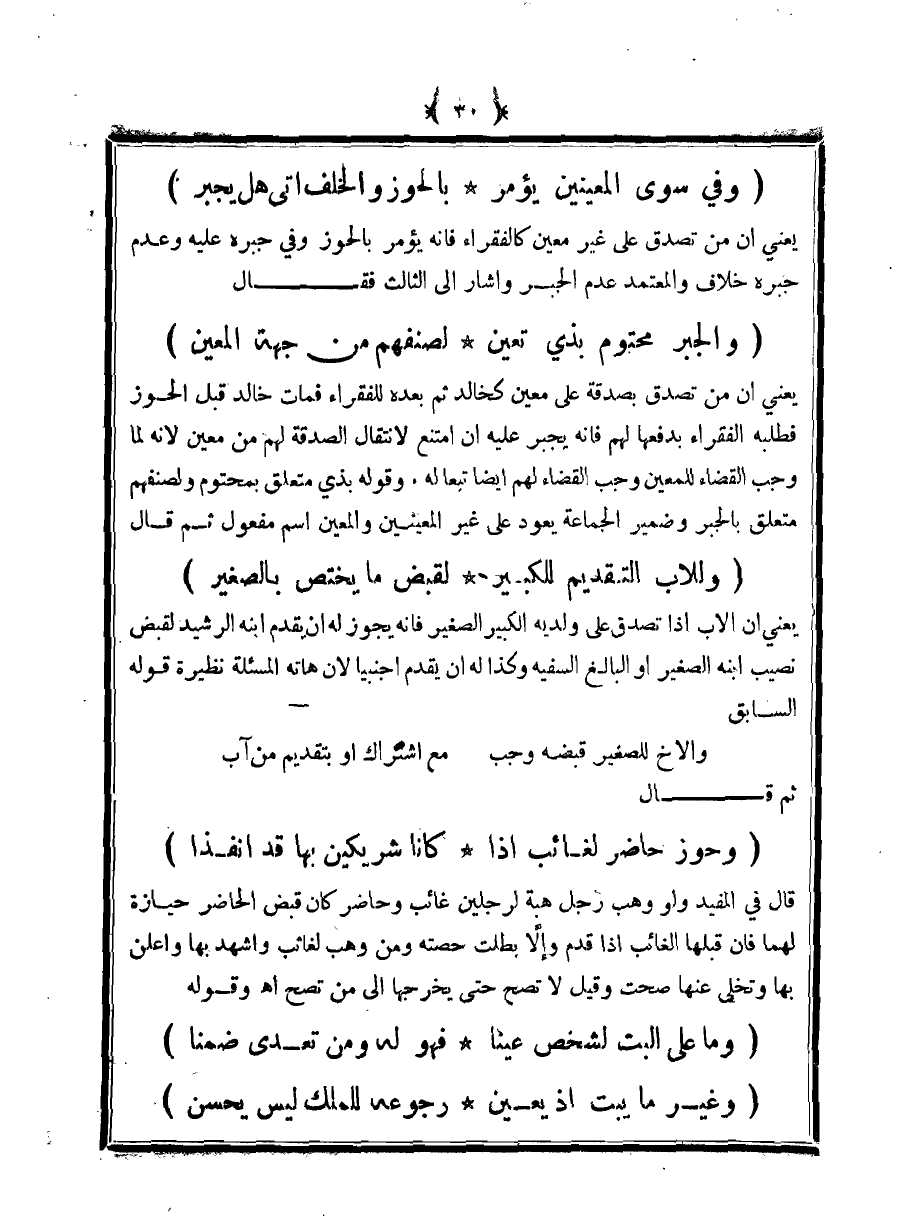 ﴿ ٣٠ ﴾
( وفي سوى المعينين يؤمر * بالحوز والخلف اتى هل يجبر )
يعني ان من تصدق على غير معين كالفقراء فانه يؤمر بالحوز وفي جبره عليه وعدم
جبره خلاف والمعتمد عدم الجبر واشار الى الثالث فقال
( والجبر محتوم بذي تعين * لصنفهم من جهة المعين )
يعني ان من تصدق بصدقة على معين كخالد ثم بعده للفقراء فمات خالد قبل الحوز
فطلبه الفقراء بدفعها لهم فانه يجبر عليه ان امتنع لانتقال الصدقة لهم من معين لانه لما
وجب القضاء للمعين وجب القضاء لهم ايضا تبعا له . وقوله بذي متعلق بمحتوم ولصنفهم
متعلق بالجبر وضمير الجماعة يعود على غير المعينين والمعين اسم مفعول ثم قال
( وللاب التقديم للكبير * لقبض ما يختص بالصغير )
يعني ان الاب اذا تصدق على ولديه الكبير الصغير فانه يجوز له ان يقدم ابنه الرشيد لقبض
نصيب ابنه الصغير او البالغ السفيه وكذا له ان يقدم اجنبيا لان هاته المسئلة نظيرة قوله
السابق
والاخ للصغير قبضه وجب مع اشتراك او بتقديم من آب
ثم قال
( وحوز حاضر لغائب اذا * كانا شريكين بها قد انفذا )
قال في المفيد ولو وهب رجل هبة لرجلين غائب وحاضر كان قبض الحاضر حيازة
لهما فان قبلها الغائب اذا قدم وإلّا بطلت حصته ومن وهب لغائب واشهد بها واعلن
بها وتخلى عنها صحت وقيل لا تصح حتى يخرجها الى من تصح اه وقوله
( وما على البت لشخص عينا * فهو له ومن تعدى ضمنا )
( وغير ما يبت اذ يعين * رجوعه للملك ليس يحسن )